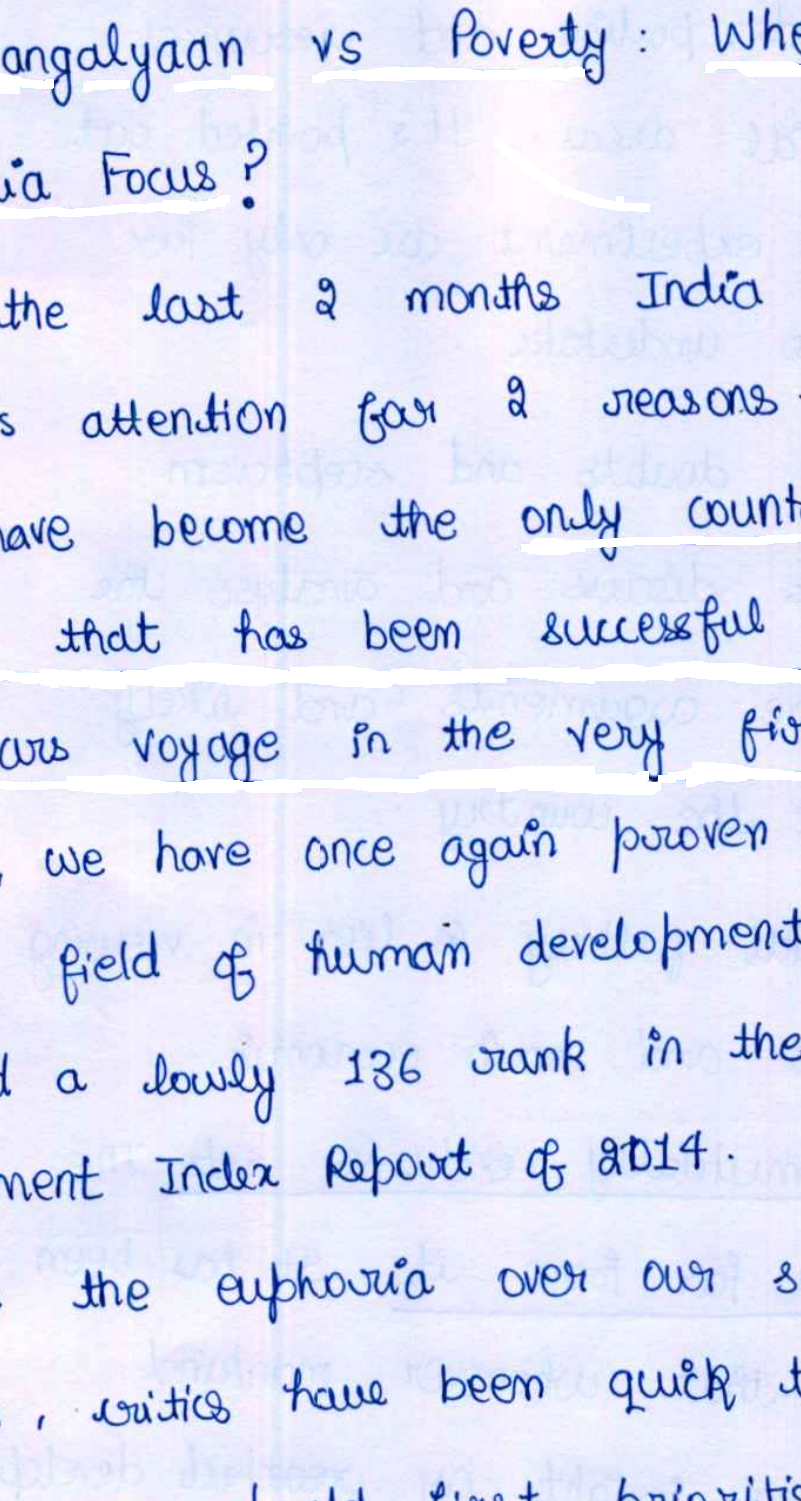 angalyaan vs Poverty : Whe
ia Focus ?
the last 2 months India
s attention for 2 reasons
have become the only count
that has been successful
ars voyage in the very fir
, we have once again proven
field of human development
d a lowly 136 rank in the
ment Index Report of 2014.
the euphoria over our s
, critics have been quick t